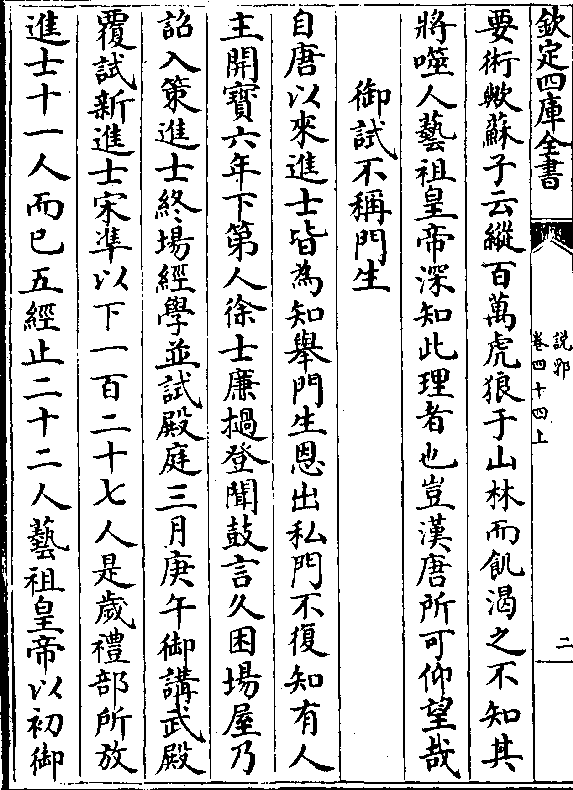 欽定四庫全書
說郛
卷四十四上
二
要術歟蘇子云縱百萬虎狼于山林而飢渴之不知其
將噬人藝祖皇帝深知此理者也豈漢唐所可仰望哉
御試不稱門生
自唐以來進士皆為知舉門生恩出私門不復知有人
主開寶六年下第人徐士廉撾登聞鼓言久困場屋乃
詔入策進士終場經學並試殿庭三月庚午御講武殿
覆試新進士宋準以下一百二十七人是歲禮部所放
進士十一人而已五經止二十二人藝祖皇帝以初御